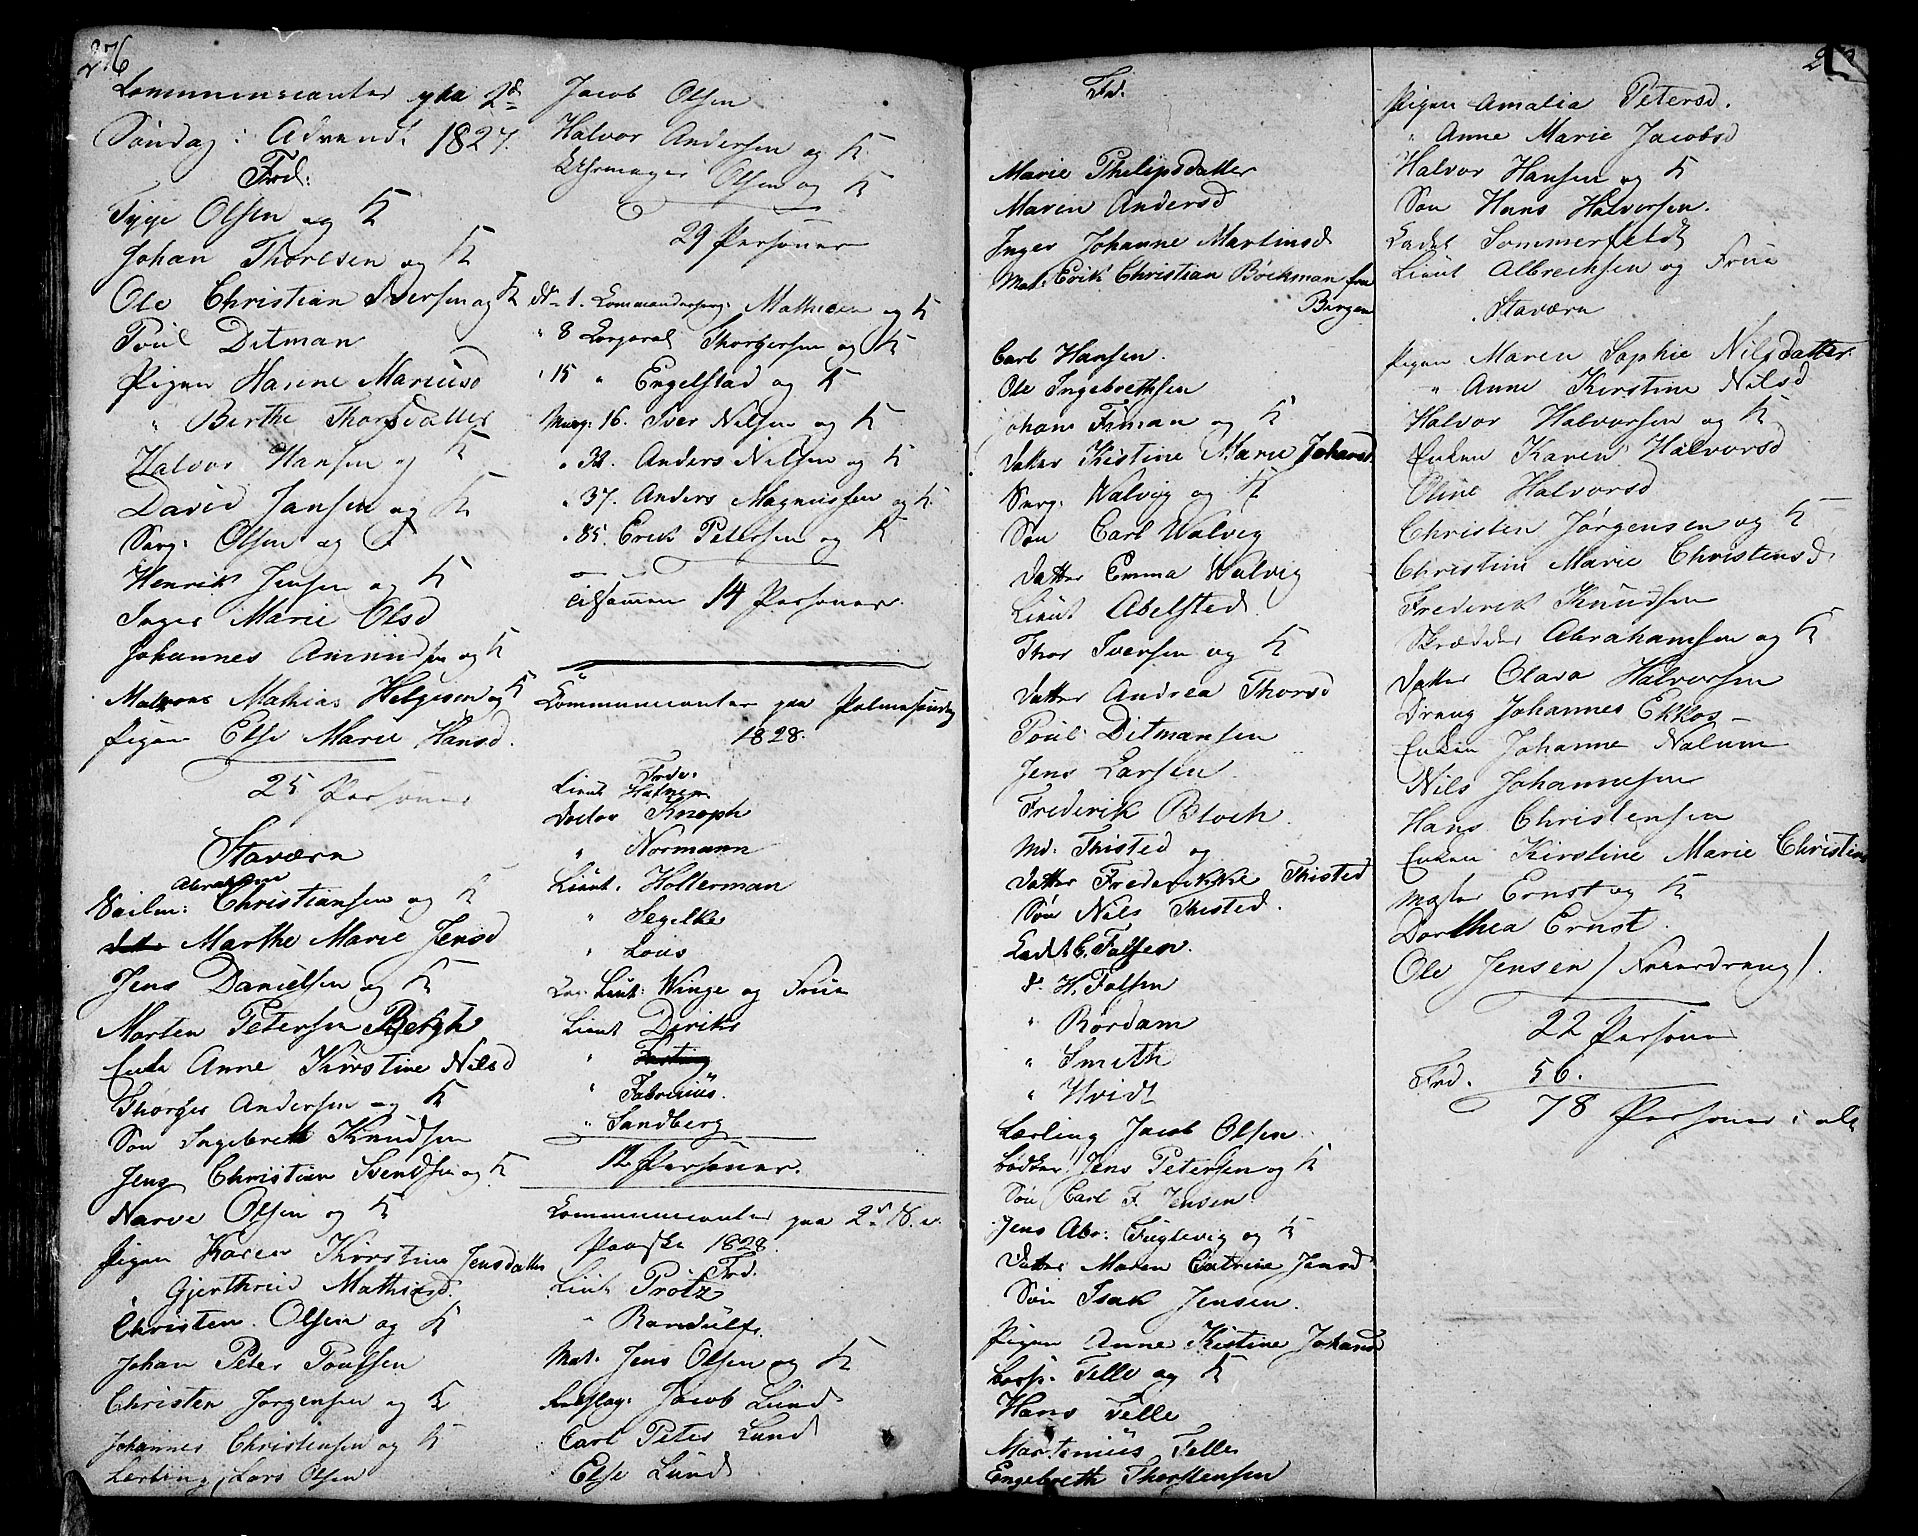 276
Communicanter paa 2d
Søndag i Advend 1827.
Frd:
Tyge Olsen og K
Johan Thoresen og K
Ole Christian Iversen og K
Poul Ditman
Pigen Hanne Mariusd
" Berthe Thorsdatter
Halvor Hansen og K
David Jansen og K
Serg: Olsen og K
Henrik Jensen og K
Inger Marie Olsd
Johannes Amundsen og K
Matros Mathias Helgesen og K
Pigen Else Marie Hansd.
25 Personer
Staværn
Abraham
Seilm: Christiansen og K
Marthe Marie Jensd
Jens Danielsen og K
Morten Petersen Bergh
Enke Anne Kirstine Nilsd
Thorger Andersen og K
Søn Ingebreth Knudsen
Jens Christian Svendsen og K
Narve Olsen og K
Pigen Karen Kirstine Jensdatter
" Gjerthrud Mathiasd.
Christen Olsen og K
Johan Peter Poulsen
Christen Jørgensen og K
Johannes Christensen og K
Lærling Lars Olsen
Jacob Olsen
Halvor Andersen og K
Uhrmager Olsen og K
29 Personer
No 1. Commanderserg: Mathisen og K
" 8 Corporal Thorgersen og K
" 15 " Engelstad og K
Marq: 16. Iver Nilsen og K
" 32. Anders Nilsen og K
" 37. Anders Magnussen og K
" 85. Erik Petersen og K
Tilsammen 14 Personer.
Communicanter paa Palmesøndag
1828.
Frd.
Lieut Hansen
Doctor Knoph
" Normann
Lieut. Holterman
" Segelke
" Lous
Sec: Lieut: Winge og Frue
Lieut Dirike
" Fabritius.
" Sandberg
12 Personer.
Communicanter paa 2d S. e.
Paaske 1828.
Frd.
Lieut Protz
" Randulf.
Mat. Jens Olsen og K
Jacob Lund
Carl Peter Lund
Else Lund
Frd.
Marie Philipsdatter
Maren Andersd
Inger Johanne Martinsd
Mat: Erik Christian Böckman fra
Bergen
Carl Hansen.
Ole Ingebrethsen
Johan Firman og K
Datter Kistine Marie Johansd
Serg: Walvig og K
Søn Carl Walvig
Datter Emma Walvig
Lieut Abelsted.
Thor Iversen og K
Datter Andrea Thorsd
Poul Ditmansen
Jens Larsen.
Frederik Bloch.
Md. Thisted og
Datter Frederikke Thisted
Søn Nils Thisted.
Cadet C. Falsen.
d. H. Falsen
" Rørdam
" Smith
" Hvidt
Lærling Jacob Olsen.
Bødker Jens Petersen og K
Søn Carl F. Jensen
Jens Abr: Fuglevig og K
Datter Maren Catrine Jensd
Søn Isak Jensen.
Pigen Anne Kistine Johansd
Corp. Telle og K
Hans Telle
Martinius Telle
Engebreth Thorstensen
Pigen Amalia Petersd.
" Anne Marie Jacobsd
Halvor Hansen og K
Søn Hans Halvorsen.
Cadet Sommerfeldt
Lieut Albrechsen og Frue
Staværn
Pigen Maren Sophie Nilsdatter.
" Anne Kirstine Nilsd
Halvor Halvorsen og K
Enken Karen Halvorsd
Oline Halvorsd
Christen Jørgensen og K
Christine Marie Christensd.
Frederik Knudsen
Skrædder Abrahamsen og K
Datter Olava Halvorsen
Dreng Johannes Ekkos
Enken Johanne Nalum
Nils Johannesen
Hans Christensen
Enken Kirstine Marie Christensd
Mester Ernst og K
Dorthea Ernst.
Ole Jensen
22 Personer
Frd. 56.
78 Personer i alt